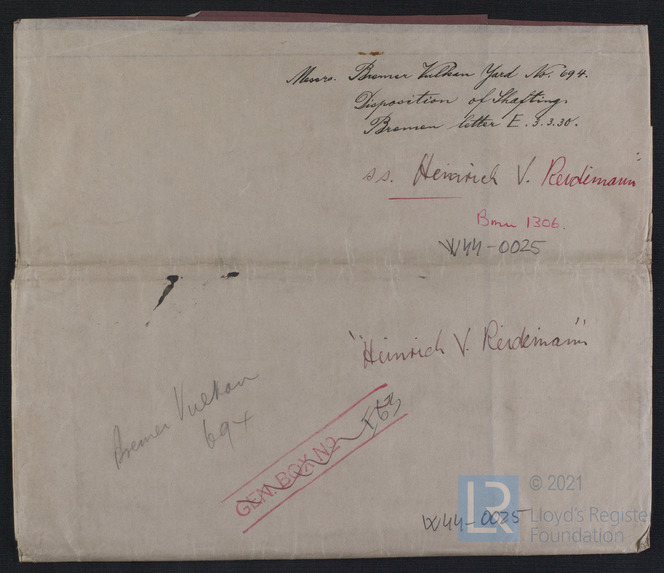 Messrs. Bremer Vulkan Yard No. 694.
Disposition of Shafting.
Bremen letter E. 3.3.30.
ss. Heinrich V. Reidemann"
Bmn 1306.
W44-0025
"Heinrich V. Reidemann"
Bremer Vulkan
694
GEN. BOX No 163
W44-0025
© 2021
Lloyd's Registe
Foundation